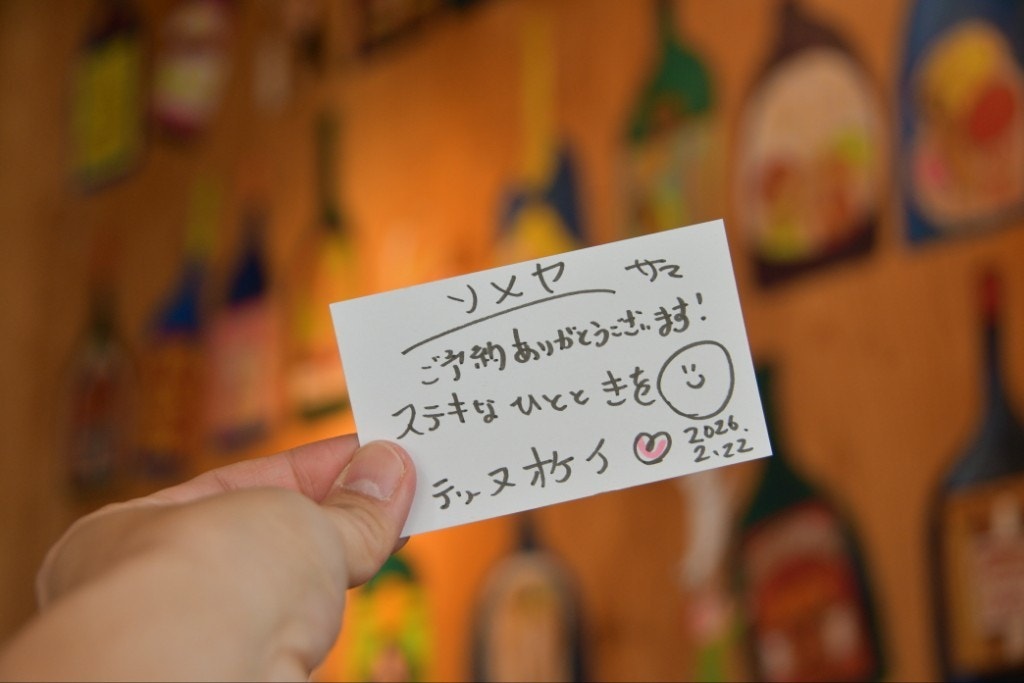 ソメヤ サマ
ご予約ありがとうございます!
ステキなひとときを
テッヌオケイ 2026.
2.22